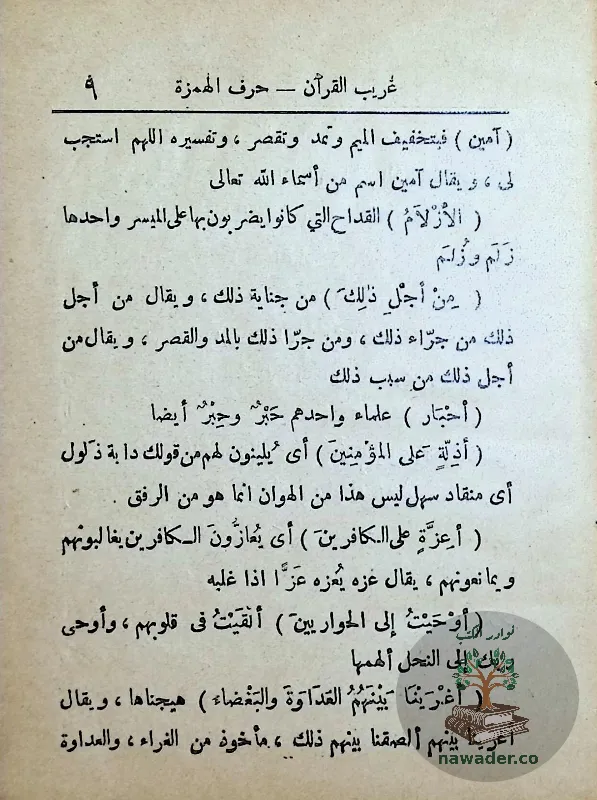 غريب القرآن — حرف الهمزة ٩
( آمين ) فبتخفيف الميم وتمد وتقصر ، وتفسيره اللهم استجب
لى ، ويقال آمين اسم من أسماء الله تعالى
( الأَزْلاَمُ ) القداح التي كانوا يضربون بها على الميسر واحدها
زَلَم وزُلَم
( مِنْ أَجْلِ ذٰلِكَ ) من جناية ذلك ، ويقال من أجل
ذلك من جرّاء ذلك ، ومن جرّا ذلك بالمد والقصر ، ويقال من
أجل ذلك من سبب ذلك
( أَحْبَار ) علماء واحدهم حَبْرٌ وحِبْرٌ أيضا
( أَذِلَّةٍ عَلى المؤْمِنِينَ ) أى يُلينون لهم من قولك دابة ذَلول
أى منقاد سهل ليس هذا من الهوان انما هو من الرفق .
( أَعِزَّةٍ على الكافرينَ ) أى يُعازُّونَ الكافرين يغالبونهم
ويمانعونهم ، يقال عزه يُعزه عَزًّا اذا غلبه
( أَوْحَيْتُ إلى الحواريينَ ) أَلْقَيْتُ فى قلوبهم ، وأوحى
ربك إلى النحل ألهمها
( أَغْرَيْنَا بَيْنَهُمُ العَدَاوَةَ والبَغْضَاءَ ) هيجناها ، ويقال
أغرينا بينهم ألصقنا بينهم ذلك ، مأخوذ من الغراء ، والعداوة
نوادر الكتب
nawader.co